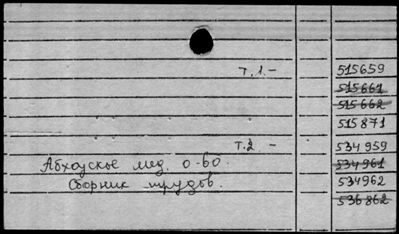 т.1. - 515659
515661
515662
515871
т.2 - 534959
Абхазское мед. о-во. 534961
Сборник трудов. 534962
536862